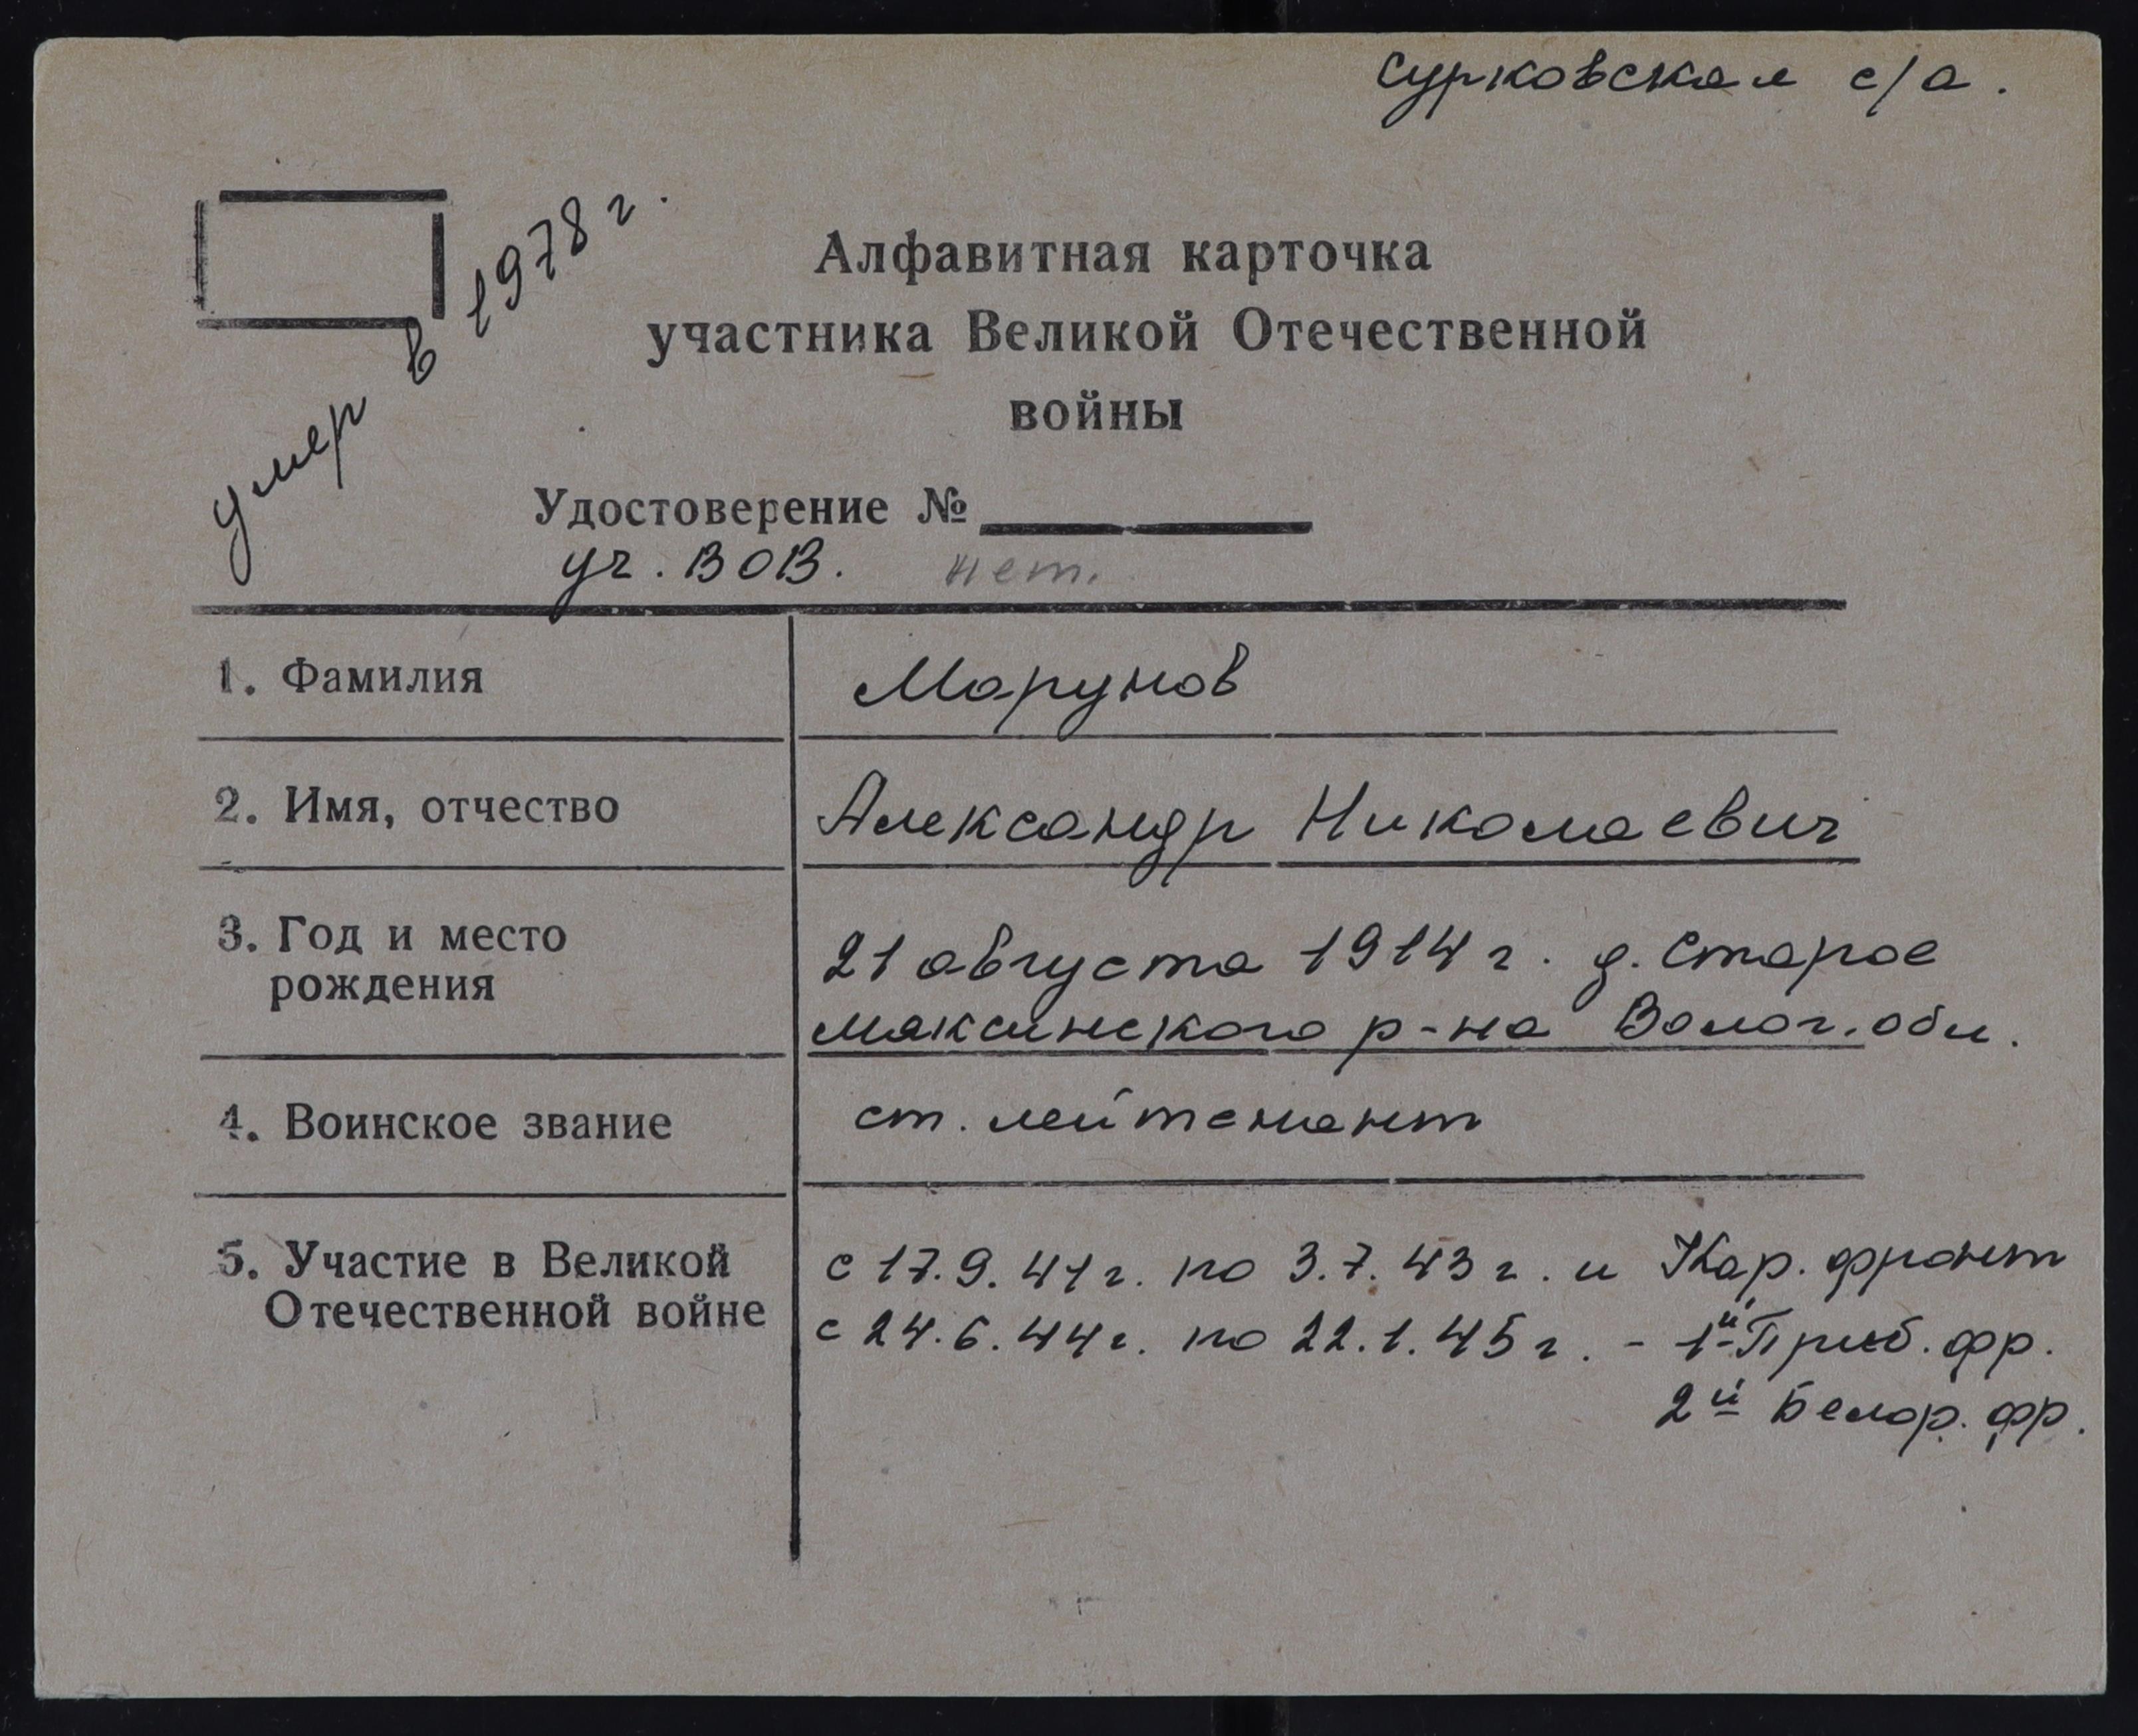 Сурковская с/а.
умер в 1978 г.
Алфавитная карточка
участника Великой Отечественной
войны
Удостоверение №
уч. ВОВ. нет.
1. Фамилия
Марунов
2. Имя, отчество
Александр Николаевич
3. Год и место
рождения
21 августа 1914 г. д. Старое
Мяксинского р-на Волог. обл.
4. Воинское звание
ст. лейтенант
5. Участие в Великой
Отечественной войне
с 17.9.41 г. по 3.7.43 г. и Кар. фронт
с 24.6.44 г. по 22.1.45 г. - 1й Приб. фр.
2й Белор. фр.